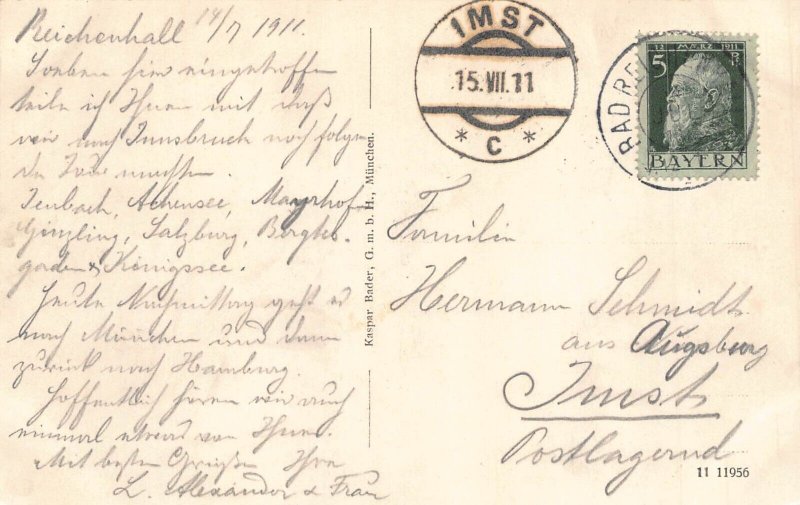 Reichenhall 14/7 1911.
Soeben hier eingetroffen
teile ich Ihnen mit daß
wir nach Innsbruck noch folgen-
de Tour machten.
Jenbach, Achensee, Mayrhof-
Ginzling, Salzburg, Berchtes-
gaden & Königssee.
Heute Nachmittag geht es
nach München und dann
zurück nach Hamburg.
Hoffentlich hören wir auch
einmal etwas von Ihnen.
Mit besten Grüßen Ihre
L. Alexander & Frau
Kaspar Bader, G. m. b. H., München.
IMST
15.VII.11
* C *
BAD RE
12 MÄRZ 1911
5 P
BAYERN
Familie
Hermann Schmidt
aus Augsburg
Imst
Postlagernd
11 11956